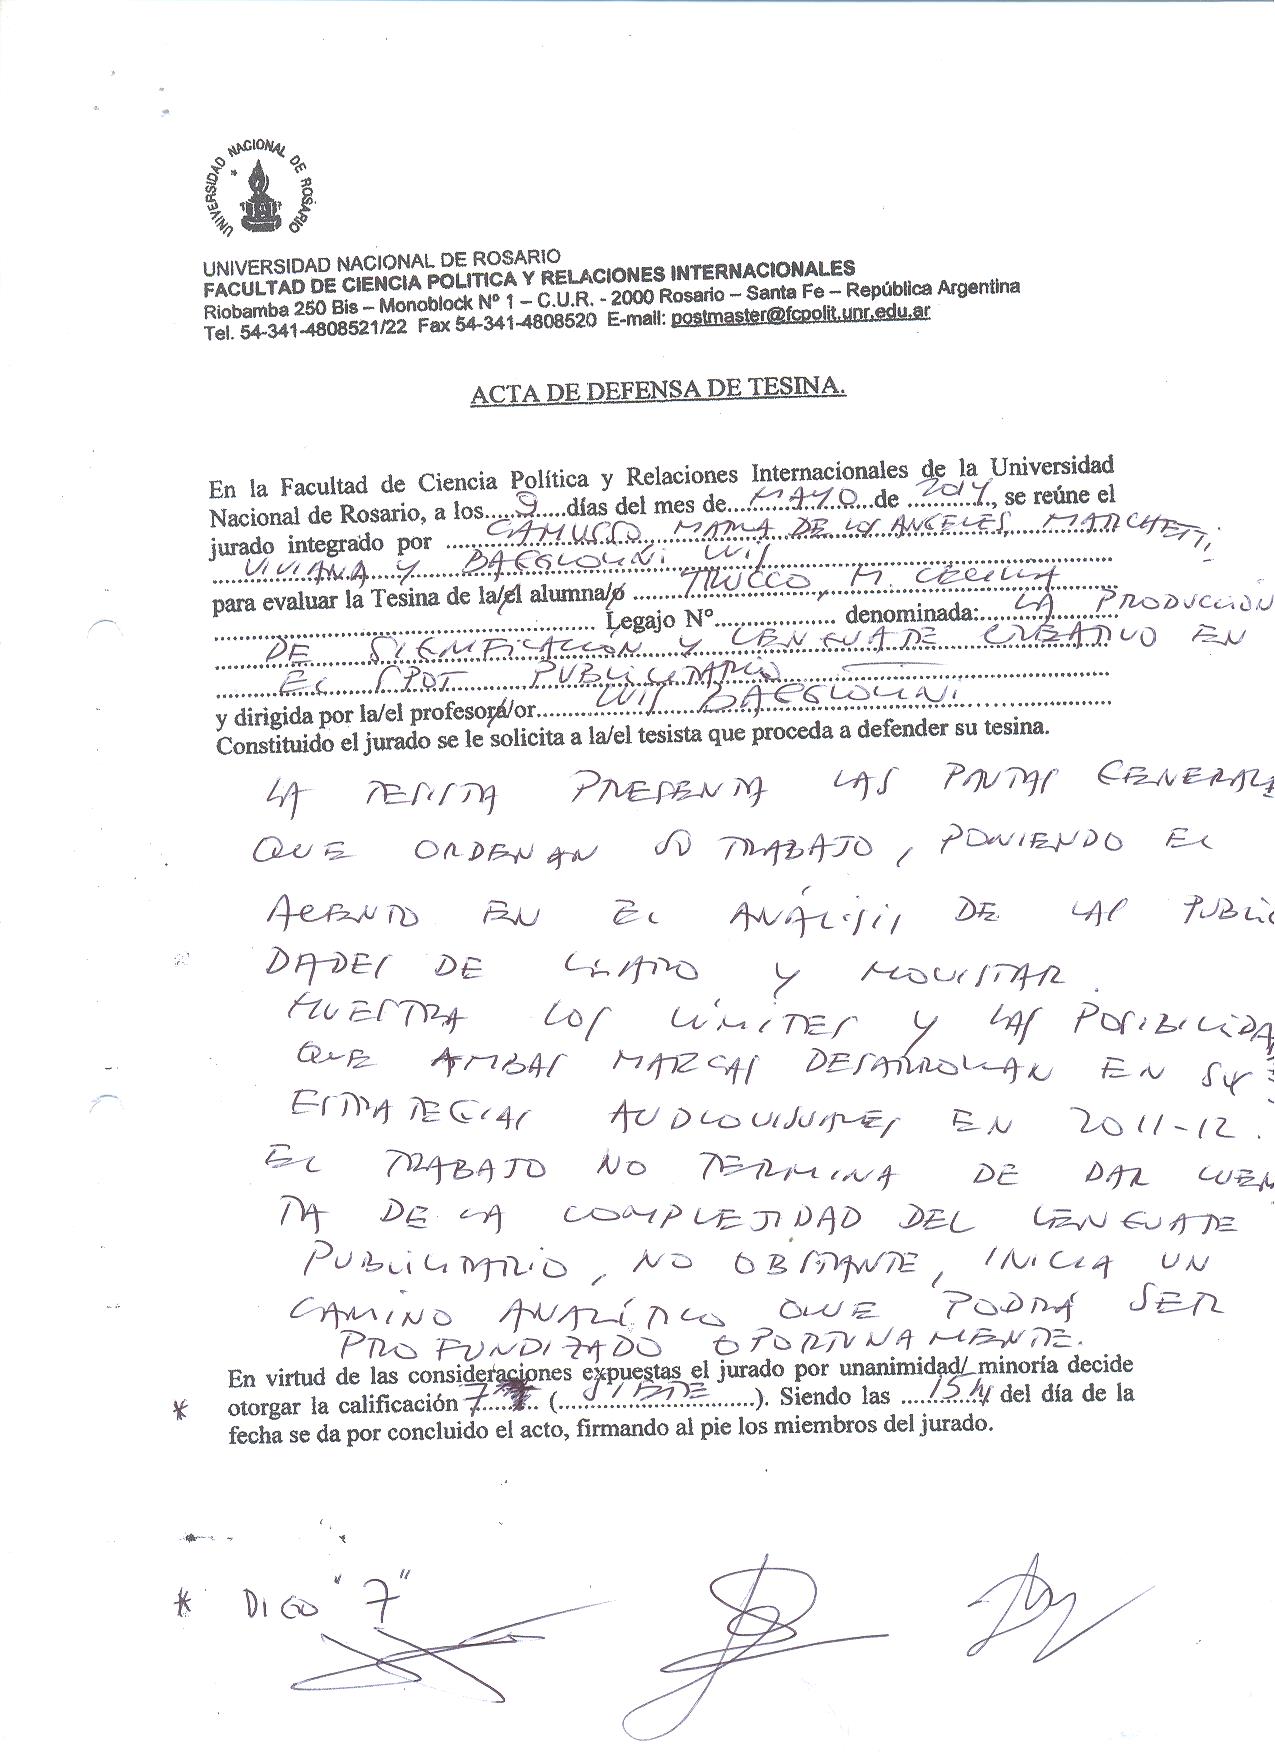 UNIVERSIDAD NACIONAL DE ROSARIO
UNIVERSIDAD NACIONAL DE ROSARIO
FACULTAD DE CIENCIA POLITICA Y RELACIONES INTERNACIONALES
Riobamba 250 Bis – Monoblock Nº 1 – C.U.R. - 2000 Rosario – Santa Fe – República Argentina
Tel. 54-341-4808521/22 Fax 54-341-4808520 E-mail: postmaster@fcpolit.unr.edu.ar
ACTA DE DEFENSA DE TESINA.
En la Facultad de Ciencia Política y Relaciones Internacionales de la Universidad
Nacional de Rosario, a los.....9....días del mes de....MAYO...de ..2014., se reúne el
jurado integrado por CAMUSSO, MARIA DE LOS ANGELES, MARCHETTI,
VIVIANA Y BAGGIOLINI LUIS
para evaluar la Tesina de la/el alumna/o TRUCCO, M. CECILIA
Legajo Nº.................. denominada: LA PRODUCCION
DE SIGNIFICACIÓN Y LENGUAJE CREATIVO EN
EL SPOT PUBLICITARIO
y dirigida por la/el profesora/or LUIS BAGGIOLINI
Constituido el jurado se le solicita a la/el tesista que proceda a defender su tesina.
LA TESISTA PRESENTA LAS PAUTAS GENERALE
QUE ORDENAN SU TRABAJO, PONIENDO EL
ACENTO EN EL ANÁLISIS DE LAS PUBLIC
DADES DE CLARO Y MOVISTAR.
MUESTRA LOS LÍMITES Y LAS POSIBILIDA
QUE AMBAS MARCAS DESARROLLAN EN SUS
ESTRATEGIAS AUDIOVISUALES EN 2011-12.
EL TRABAJO NO TERMINA DE DAR CUEN
TA DE LA COMPLEJIDAD DEL LENGUAJE
PUBLICITARIO, NO OBSTANTE, INICIA UN
CAMINO ANALÍTICO QUE PODRÁ SER
PROFUNDIZADO OPORTUNAMENTE.
En virtud de las consideraciones expuestas el jurado por unanimidad/ minoría decide
* otorgar la calificación 7 (SIETE). Siendo las ....15.... del día de la
fecha se da por concluido el acto, firmando al pie los miembros del jurado.
* DIGO "7"